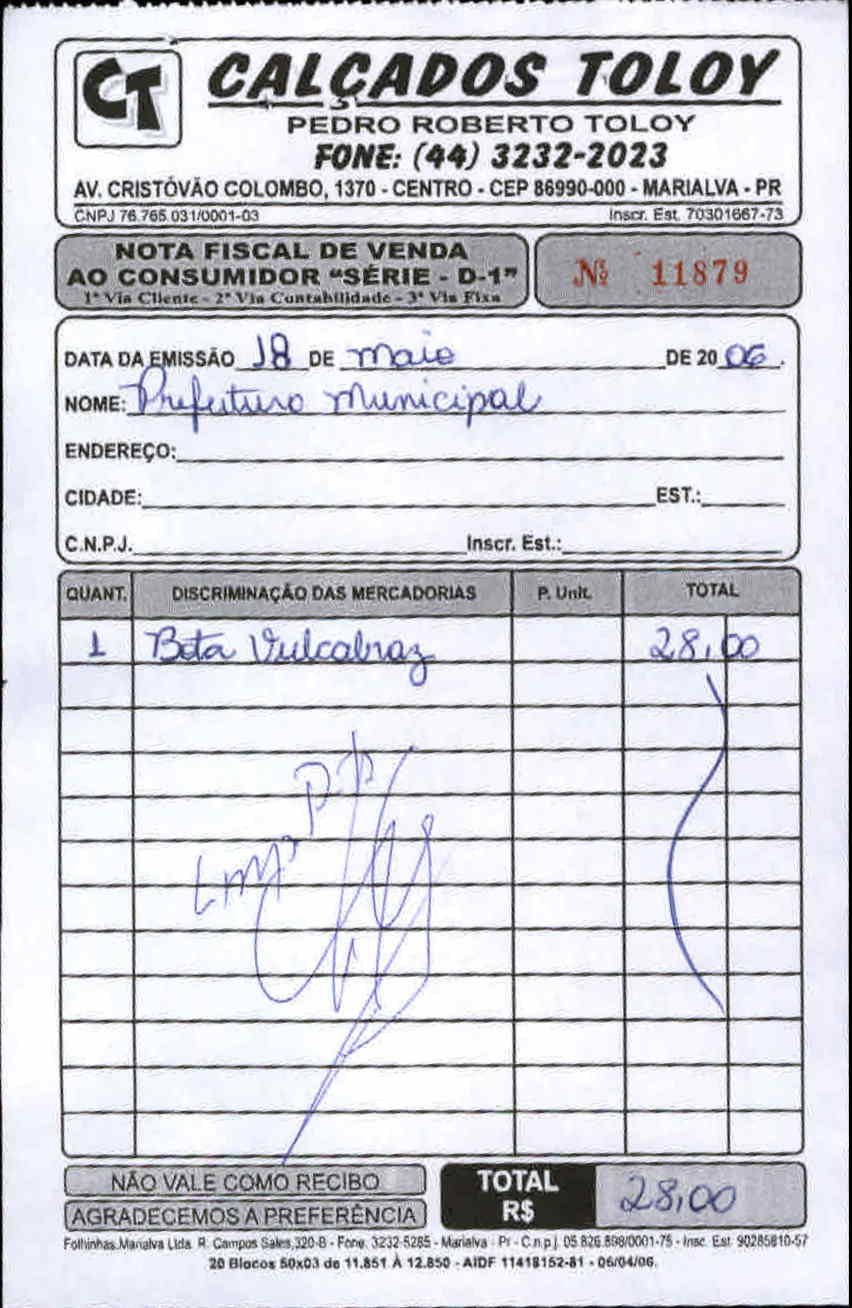 CT CALÇADOS TOLOY
PEDRO ROBERTO TOLOY
FONE: (44) 3232-2023
AV. CRISTÓVÃO COLOMBO, 1370 - CENTRO - CEP 86990-000 - MARIALVA - PR
CNPJ 76.765.031/0001-03 Inscr. Est. 70301667-73
NOTA FISCAL DE VENDA
AO CONSUMIDOR "SÉRIE - D-1"
1ª Via Cliente - 2ª Via Contabilidade - 3ª Via Fixa
Nº 11879
DATA DA EMISSÃO 18 DE maio DE 20 06.
NOME: Prefeitura Municipal
ENDEREÇO:
CIDADE: EST.:
C.N.P.J. Inscr. Est.:
QUANT. DISCRIMINAÇÃO DAS MERCADORIAS P. Unit. TOTAL
1 Bota Vulcabraz 28,00
NÃO VALE COMO RECIBO
AGRADECEMOS A PREFERÊNCIA
TOTAL R$ 28,00
Folhinhas Marialva Ltda. R. Campos Sales, 320-B - Fone: 3232-5285 - Marialva - Pr - C.n.p.j. 05.826.898/0001-75 - Insc. Est. 90285810-57
20 Blocos 50x03 de 11.851 À 12.850 - AIDF 11418152-81 - 06/04/06.